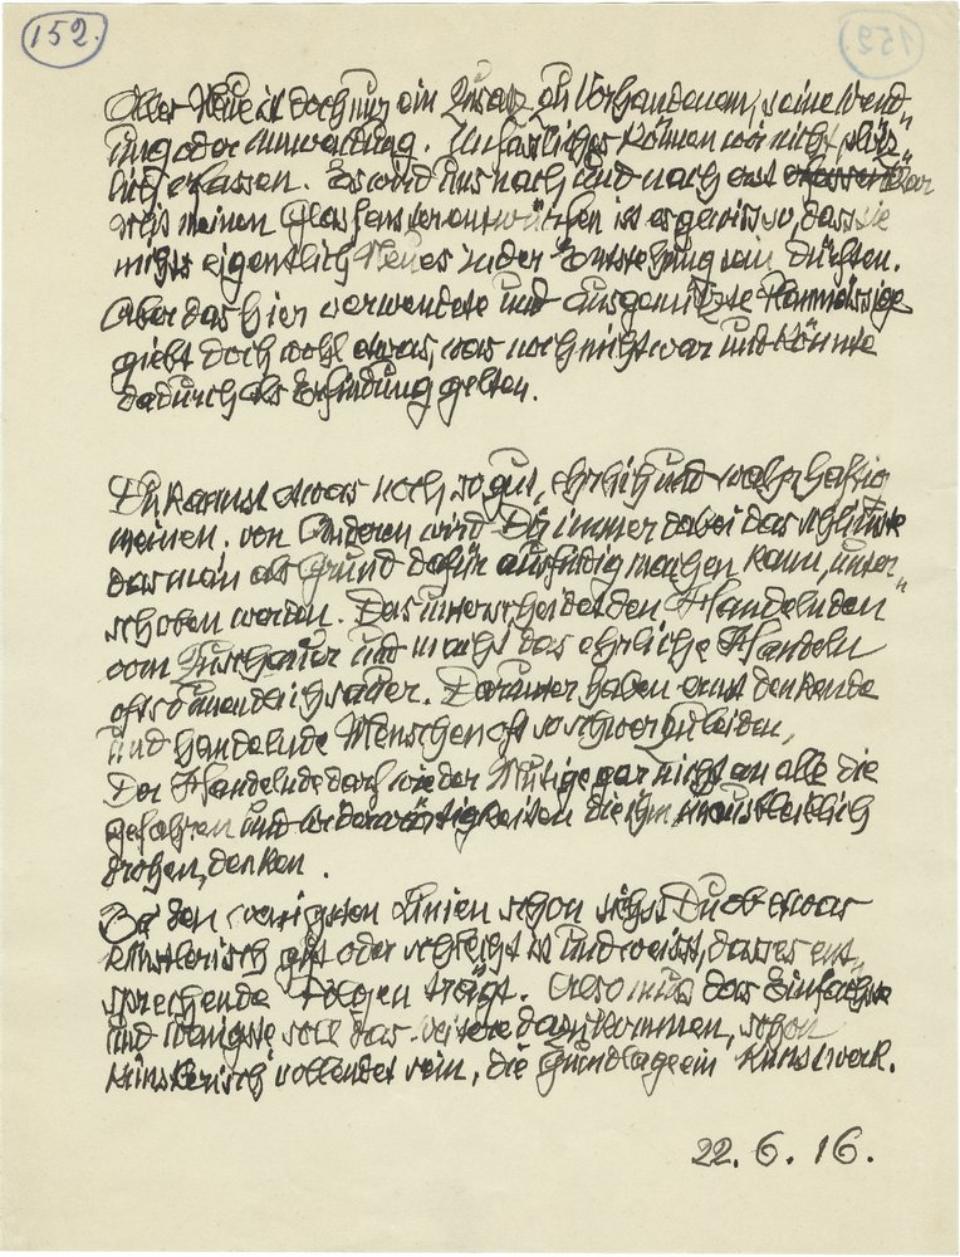 152.
Alles Neue ist doch nur ein Zusatz zu Vorhandenem, seine Wend„
ung oder Umwandlung. Unfassliches können wir nicht plötz„
lich erfassen. Es wird uns nach und nach erst klar
meinen Glasfensterentwürfen ist es gewiss so, dass sie
nichts eigentlich Neues in der Entstehung sein dürften.
Aber das hier verwendete und ausgenützte Planmässige
giebt doch wohl etwas, was noch nicht war und könnte
dadurch als Erfindung gelten.
Du kannst etwas noch so gut, ehrlich und wahrhaftig
meinen. von Anderen wird Dir immer dabei das schlimmste
das man als Grund dafür ausfindig machen kann, unter„
schoben werden. Das unterscheidet den Handelnden
vom Zuschauer und macht das ehrliche Handeln
oft so unendlich schwer. Darunter haben ernst denkende
und handelnde Menschen oft so schwer zu leiden,
Der Handelnde darf wie der Mutige gar nicht an alle die
gefahren und widerwärtigkeiten die ihm unausbleiblich
drohen, denken.
Bei den wenigsten Linien schon siehst Du ob etwas
künstlerisch gut oder schlecht ist und weisst, dass es ent„
sprechende Folgen trägt. Also muss das Einfachste
und wenigste soll das weitere dazu kommen, schon
künstlerisch vollendet sein, die Grundlage ein Kunstwerk.
22. 6. 16.